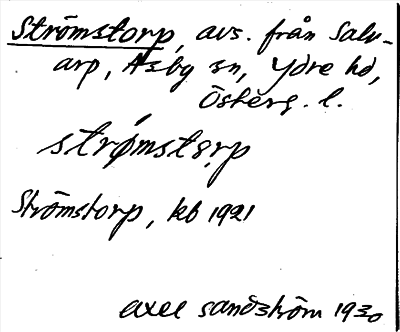 Strömstorp, avs. från Salv-
arp, Asby sn, Ydre hd,
Österg. l.
strǿmstɘrp
Strömstorp, kb 1921
Axel Sandström 1930